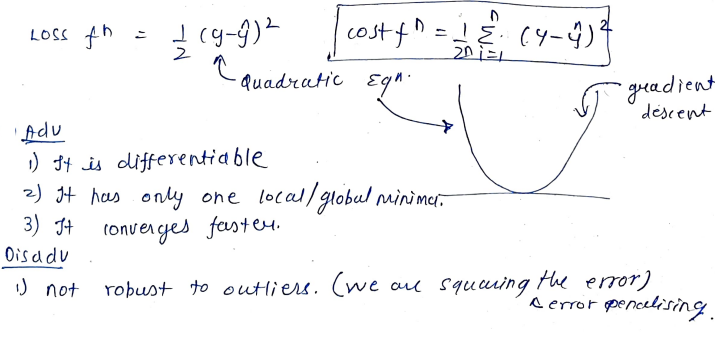 Loss fn = 1/2 (y-ŷ)²
cost fn = 1/2n Σ i=1 n (y-ŷ)²
Quadratic Eqn.
gradient
descent
Adv
1) It is differentiable
2) It has only one local/global minima.
3) It converges faster.
Disadv
1) not robust to outliers. (we are squaring the error)
error penalising.